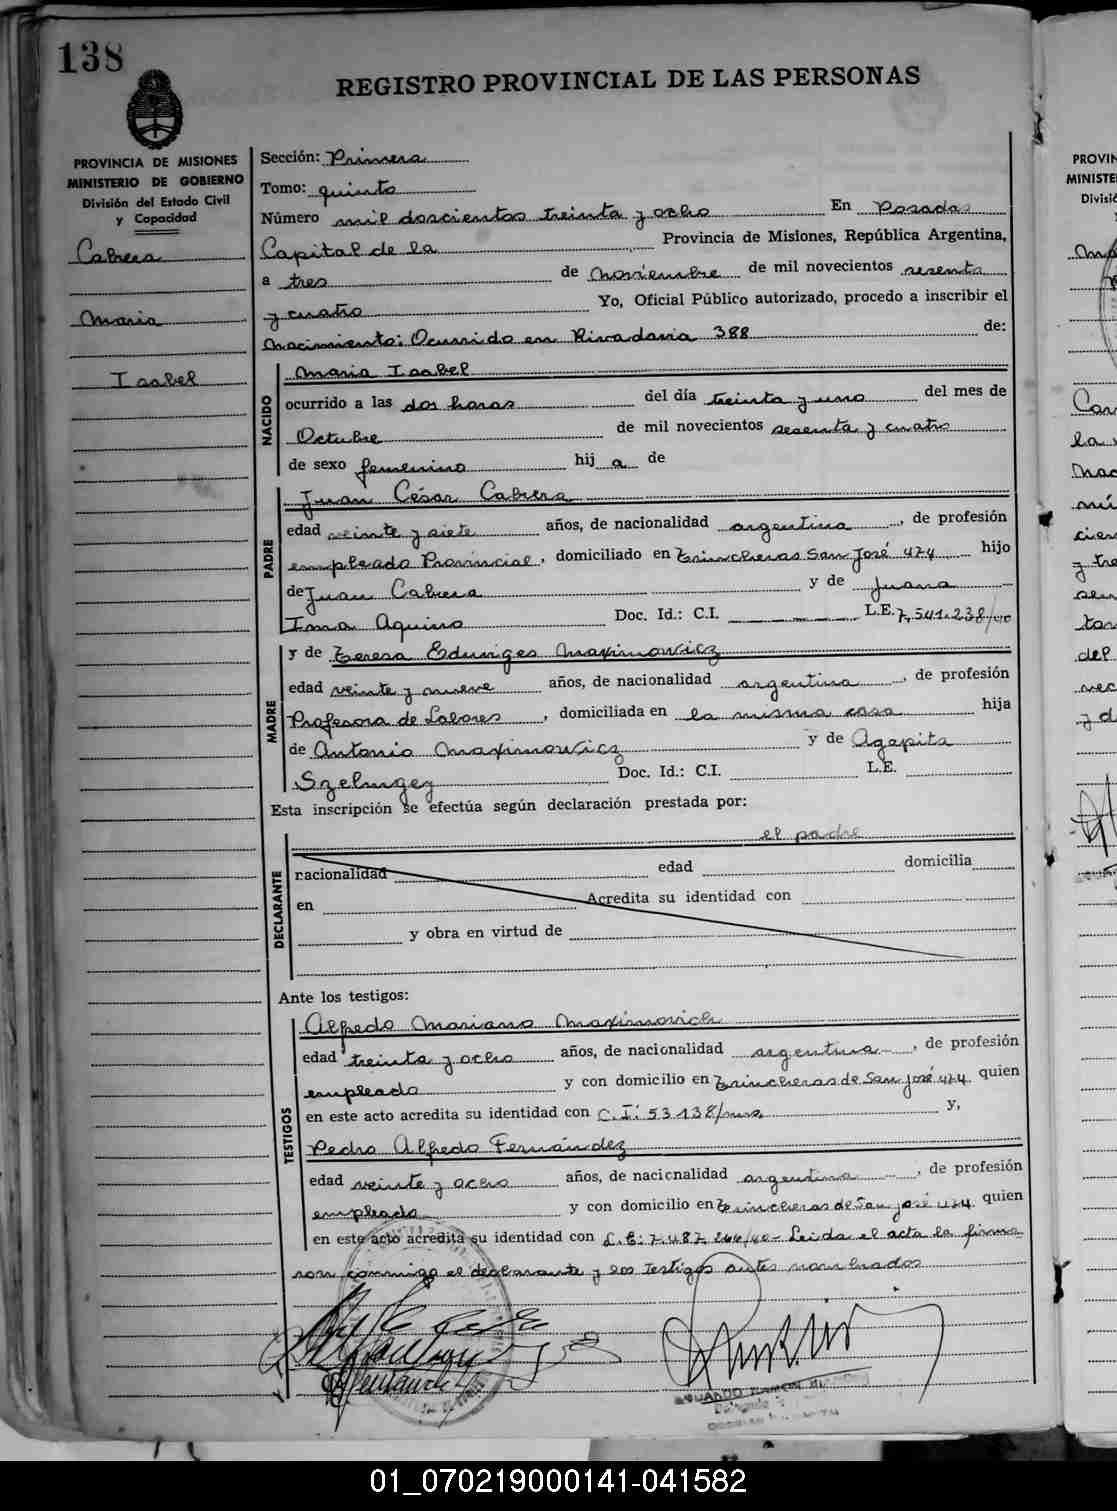 138
REGISTRO PROVINCIAL DE LAS PERSONAS
PROVINCIA DE MISIONES
MINISTERIO DE GOBIERNO
División del Estado Civil
y Capacidad
Cabrera
Maria
Isabel
Sección: Primera
Tomo: quinto
Número mil doscientos treinta y ocho En Posadas
Capital de la Provincia de Misiones, República Argentina,
a tres de noviembre de mil novecientos sesenta
y cuatro Yo, Oficial Público autorizado, procedo a inscribir el
nacimiento: Ocurrido en Rivadavia 388 de:
NACIDO
Maria Isabel
ocurrido a las dos horas del día treinta y uno del mes de
Octubre de mil novecientos sesenta y cuatro
de sexo femenino hij a de
PADRE
Juan César Cabrera
edad veinte y siete años, de nacionalidad argentina, de profesión
empleado Provincial, domiciliado en Trincheras San José 474 hijo
de Juan Cabrera y de Juana
Irma Aquino Doc. Id.: C.I. L.E. 7.541.238/
MADRE
y de Teresa Eduviges Maximowicz
edad veinte y nueve años, de nacionalidad argentina, de profesión
Profesora de Labores, domiciliada en la misma casa hija
de Antonio Maximowicz y de Agapita
Doc. Id.: C.I. L.E.
Esta inscripción se efectúa según declaración prestada por:
el padre
DECLARANTE
nacionalidad edad domicilia
en Acredita su identidad con
y obra en virtud de
Ante los testigos:
TESTIGOS
Alfredo Mariano Maximovich
edad treinta y ocho años, de nacionalidad argentina, de profesión
empleado y con domicilio en Trincheras de San José 474 quien
en este acto acredita su identidad con C.I: 53138/ y,
Pedro Alfredo Fernández
edad veinte y ocho años, de nacionalidad argentina, de profesión
empleado y con domicilio en Trincheras de San José 474 quien
en este acto acredita su identidad con L.E: 7.487. Leída el acta la firma
ron conmigo el declarante y los testigos antes nombrados
PROVIN
MINISTE
01_070219000141-041582